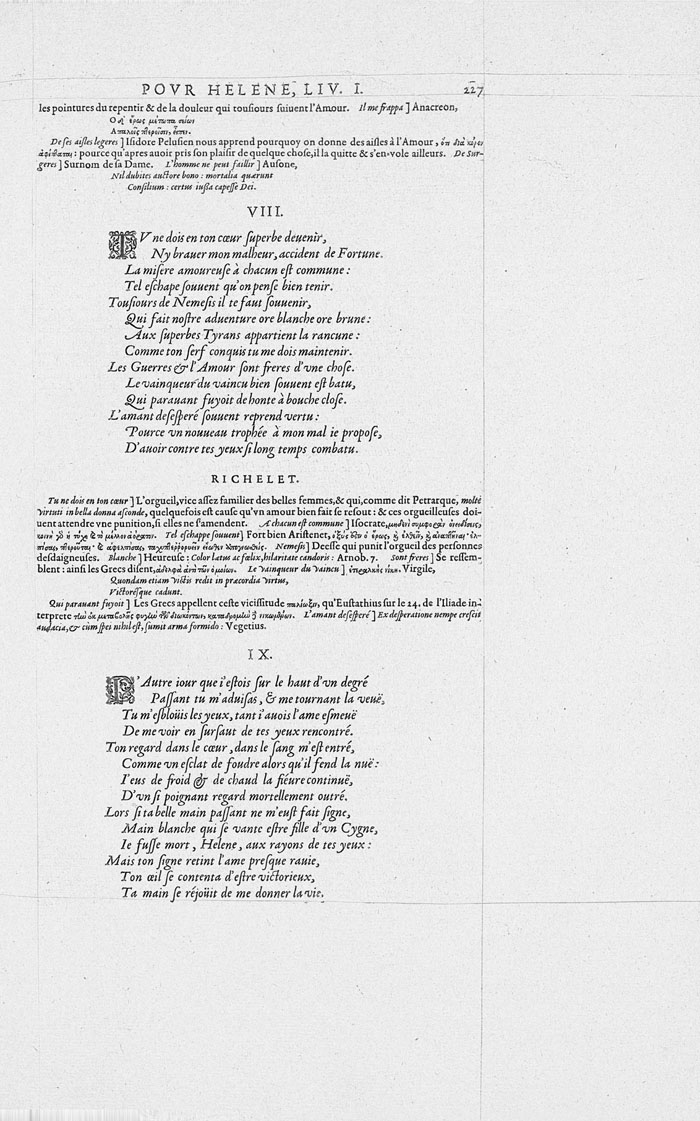 POVR HELENE, LIV. I. 227
les pointures du repentir & de la douleur qui touſiours ſuiuent l'Amour. Il me frappa ] Anacreon,
De ſes aiſles legeres ] Iſidore Peluſien nous apprend pourquoy on donne des aiſles à l'Amour,
pource qu'apres auoir pris ſon plaiſir de quelque choſe, il la quitte & s'en-vole ailleurs. De Sur-
geres ] Surnom de ſa Dame. L'homme ne peut faillir ] Auſone,
Nil dubites auctore bono : mortalia quærunt
Conſilium : certus iuſſa capeſſe Dei.
VIII.
TV ne dois en ton cœur ſuperbe deuenir,
Ny brauer mon malheur, accident de Fortune.
La miſere amoureuſe à chacun eſt commune :
Tel eſchape ſouuent qu'on penſe bien tenir.
Touſiours de Nemeſis il te faut ſouuenir,
Qui fait noſtre aduenture ore blanche ore brune :
Aux ſuperbes Tyrans appartient la rancune :
Comme ton ſerf conquis tu me dois maintenir.
Les Guerres & l'Amour ſont freres d'vne choſe.
Le vainqueur du vaincu bien ſouuent eſt batu,
Qui parauant fuyoit de honte à bouche cloſe.
L'amant deſeſperé ſouuent reprend vertu :
Pource vn nouueau trophée à mon mal ie propoſe,
D'auoir contre tes yeux ſi long temps combatu.
RICHELET.
Tu ne dois en ton cœur ] L'orgueil, vice aſſez familier des belles femmes, & qui, comme dit Petrarque, molté
virtuti in bella donna aſconde, quelquefois eſt cauſe qu'vn amour bien fait ſe reſout : & ces orgueilleuſes doi-
uent attendre vne punition, ſi elles ne s'amendent. A chacun eſt commune ] Iſocrate,
Tel eſchappe ſouuent ] Fort bien Ariſtenet,
Nemeſis ] Deeſſe qui punit l'orgueil des perſonnes
desdaigneuſes. Blanche ] Heureuſe : Color latus ac fœlix, hilaritate candoris : Arnob. 7. Sont freres ] Se reſſem-
blent : ainſi les Grecs diſent, Le vainqueur du vaincu ] Virgile,
Quondam etiam victis redit in præcordia virtus,
Victoréſque cadunt.
Qui parauant fuyoit ] Les Grecs appellent ceſte viciſſitude qu'Euſtathius ſur le 24. de l'Iliade in-
terprete L'amant deſeſperé ] Ex deſperatione nempe creſcit
audacia, & cùm ſpes nihil eſt, ſumit arma formido : Vegetius.
IX.
L'Autre iour que i'eſtois ſur le haut d'vn degré
Paſſant tu m'aduiſas, & me tournant la veuë,
Tu m'eſbloüis les yeux, tant i'auois l'ame eſmeuë
De me voir en ſurſaut de tes yeux rencontré.
Ton regard dans le cœur, dans le ſang m'eſt entré,
Comme vn eſclat de foudre alors qu'il fend la nuë :
I'eus de froid & de chaud la fiéure continuë,
D'vn ſi poignant regard mortellement outré.
Lors ſi ta belle main paſſant ne m'euſt fait ſigne,
Main blanche qui ſe vante eſtre fille d'vn Cygne,
Ie fuſſe mort, Helene, aux rayons de tes yeux :
Mais ton ſigne retint l'ame preſque rauie,
Ton œil ſe contenta d'eſtre victorieux,
Ta main ſe réjoüit de me donner la vie.